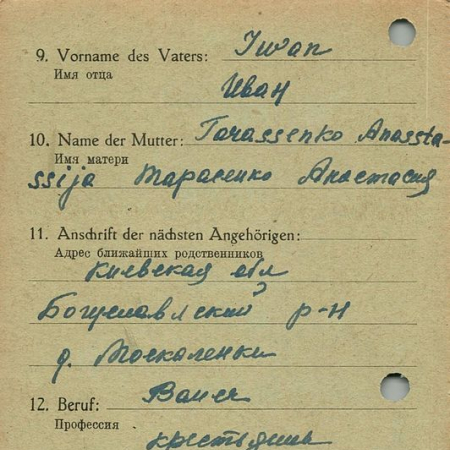 9. Vorname des Vaters: Iwan
Имя отца
Иван
10. Name der Mutter: Tarassenko Anassta-
Имя матери
ssija Тарасенко Анастасия
11. Anschrift der nächsten Angehörigen:
Адрес ближайших родственников
Киевская обл
Богуславский р-н
д. Москаленки
12. Beruf: Bauer
Профессия
крестьянин